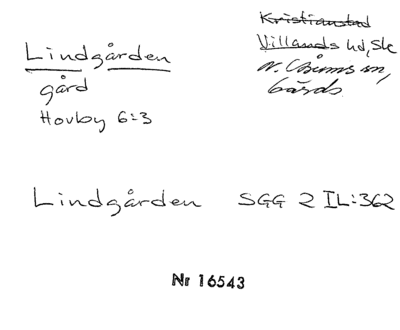 Lindgården
gård
Hovby 6:3
Kristianstad
Villands hd, Sk
N. Åsums sn,
Gärds
Lindgården SGG 2 IL:362
Nr 16543